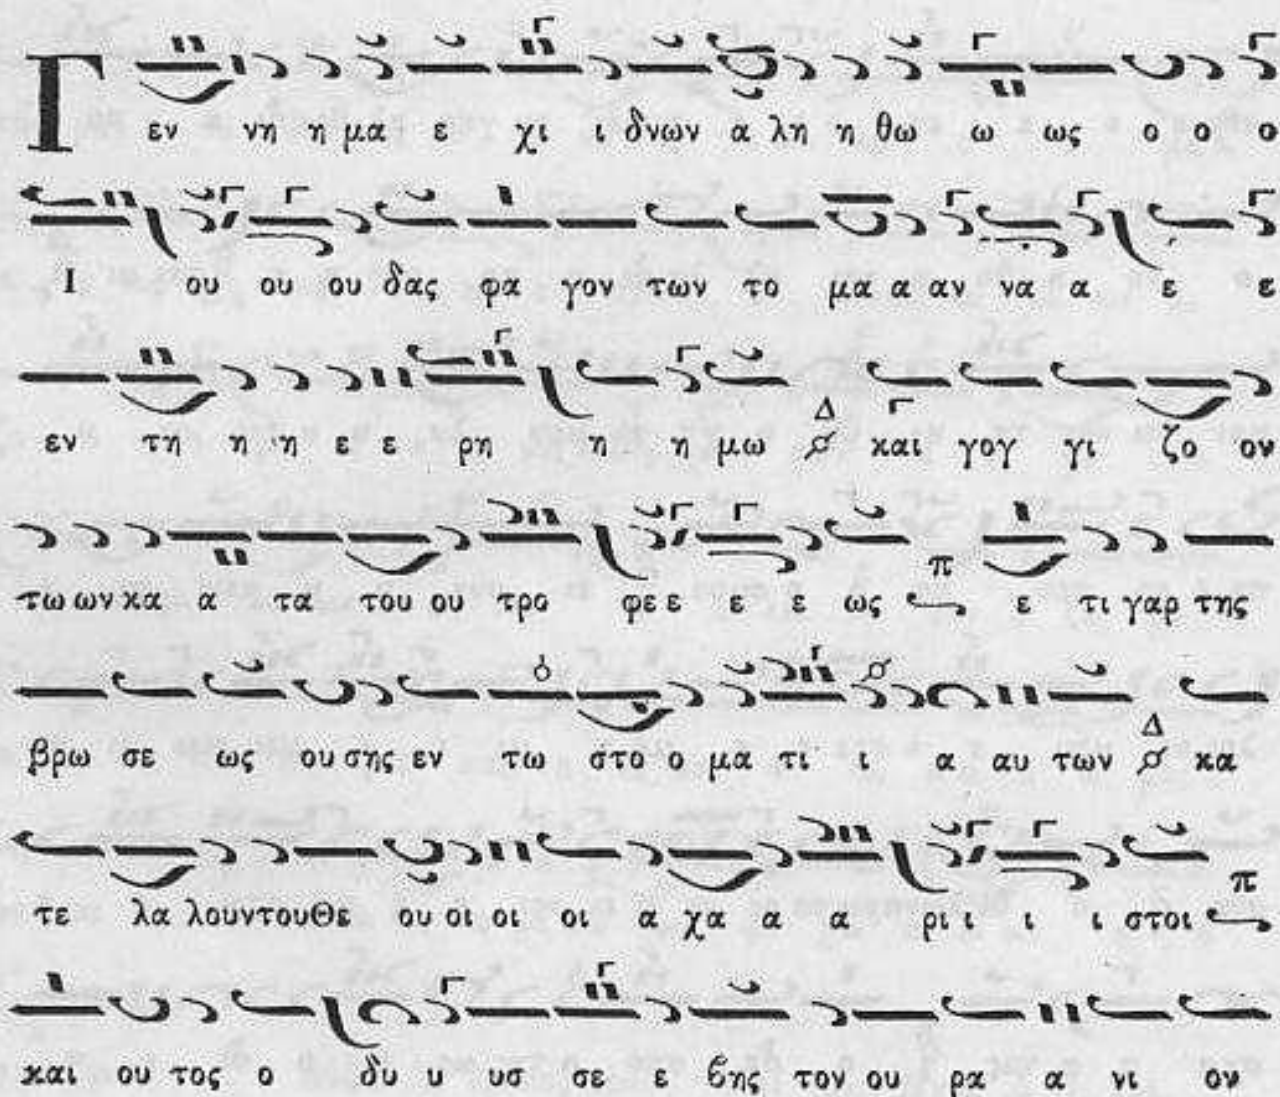 Γ εν νη η μα ε χι ι δνων α λη η θω ω ως ο ο ο
Ι ου ου ου δας φα γον των το μα α αν να α ε ε
εν τη η η ε ε ρη η η μω Δ και γογ γι ζο ον
τω ων κα α τα του ου τρο φε ε ε ε ως π ε τι γαρ της
βρω σε ως ου σης εν τω στο ο μα τι ι α αυ των Δ κα
τε λα λουντουΘε ου οι οι οι α χα α α ρι ι ι ι στοι π
και ου τος ο δυ υ υσ σε ε βης τον ου ρα α νι ον